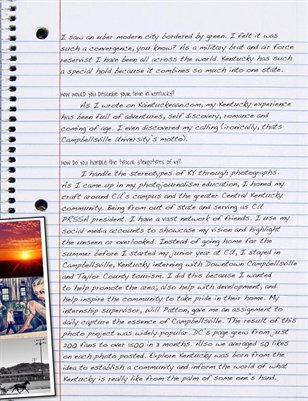 I saw an uber modern city bordered by green. I felt it was
such a convergence, you know? As a military brat and air force
reservist I have been all across the world. Kentucky has such
a special hold because it combines so much into one state.
How would you describe your time in Kentucky?
As I wrote on Kaintuckeean.com, my Kentucky experience
has been full of adventures, self discovery, romance and
coming of age. I even discovered my calling (ironically, thats
Campbellsville University's motto).
How do you handle the typical stereotypes of KY?
I handle the stereotypes of KY through photographs.
As I came up in my photojournalism education, I honed my
craft around CU's campus and the greater Central Kentucky
community. Being from out of state and serving as CU
PRSSA president. I have a vast network of friends. I use my
social media accounts to showcase my vision and highlight
the unseen or overlooked. Instead of going home for the
summer before I started my junior year at CU, I stayed in
Campbellsville, Kentucky interning with Downtown Campbellsville
and Taylor County tourism. I did this because I wanted
to help promote the area, also help with development, and
help inspire the community to take pride in their home. My
internship supervisor, Will Patton, gave me an assignment to
daily capture the essence of Campbellsville. The result of this
photo project was widely popular. DC's page grew from just
200 fans to over 1500 in 3 months. Also we averaged 50 likes
on each photo posted. Explore Kentucky was born from the
idea to establish a community and inform the world of what
Kentucky is really like from the palm of some one's hand.